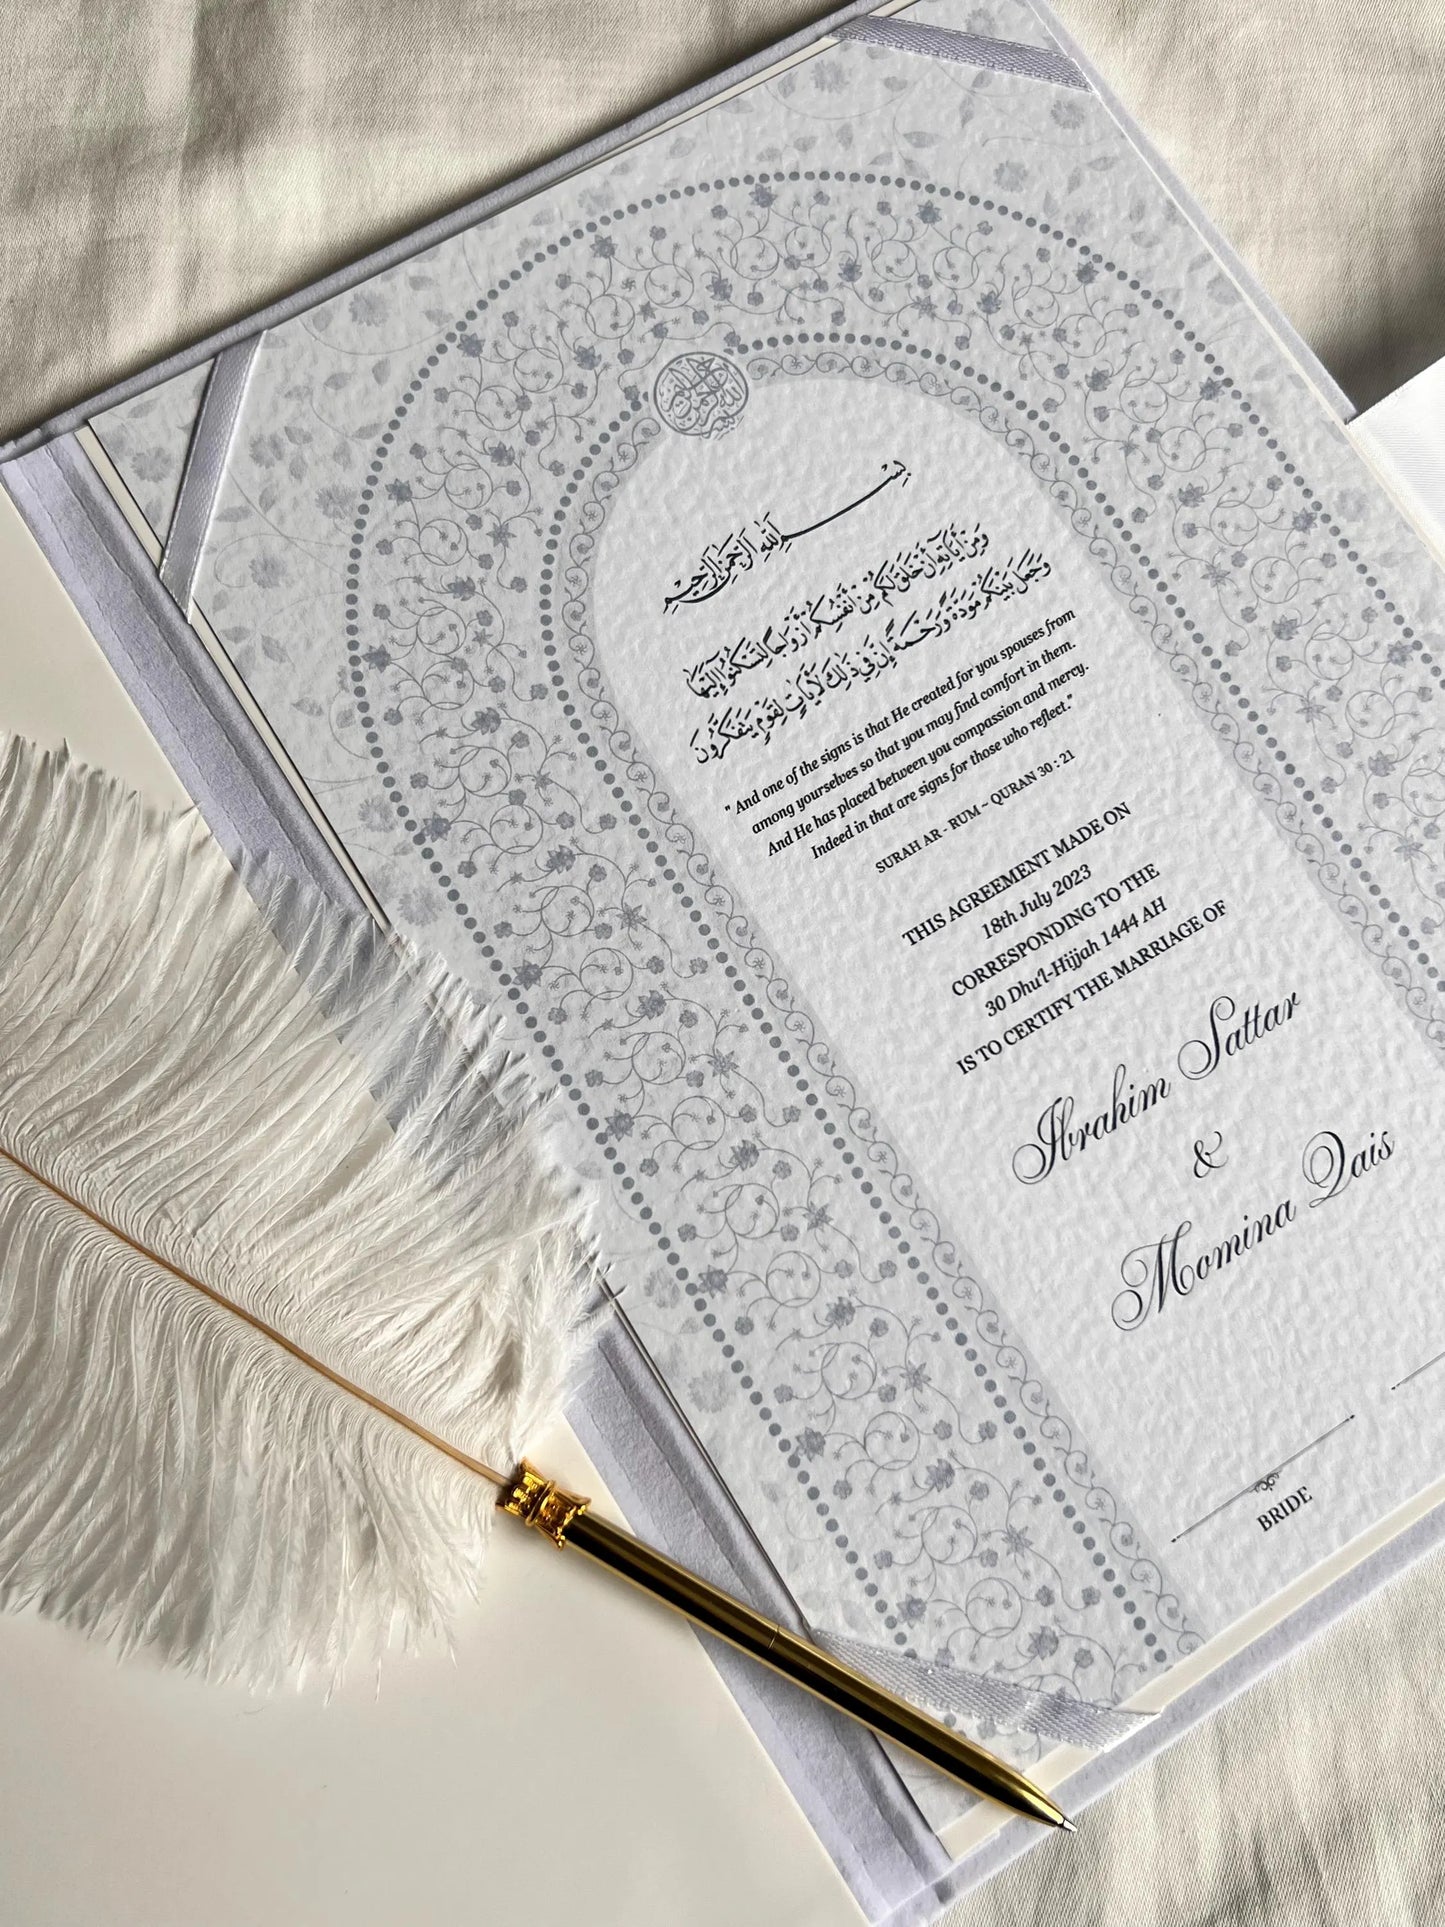 بِسْمِ اللَّهِ الرَّحْمَٰنِ الرَّحِيمِ
وَمِنْ آيَاتِهِ أَنْ خَلَقَ لَكُم مِّنْ أَنفُسِكُمْ أَزْوَاجًا لِّتَسْكُنُوا إِلَيْهَا
وَجَعَلَ بَيْنَكُم مَّوَدَّةً وَرَحْمَةً إِنَّ فِي ذَٰلِكَ لَآيَاتٍ لِّقَوْمٍ يَتَفَكَّرُونَ
" And one of the signs is that He created for you spouses from
among yourselves so that you may find comfort in them.
And He has placed between you compassion and mercy.
Indeed in that are signs for those who reflect."
SURAH AR - RUM ~ QURAN 30 : 21
THIS AGREEMENT MADE ON
18th July 2023
CORRESPONDING TO THE
30 Dhu'l-Hijjah 1444 AH
IS TO CERTIFY THE MARRIAGE OF
Ibrahim Sattar
&
Momina Qais
BRIDE